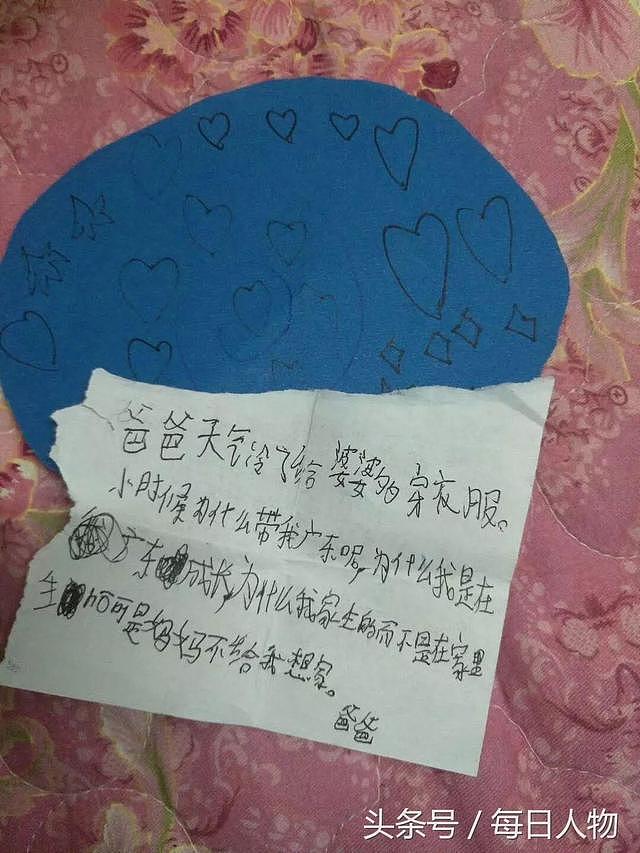 爸爸天气冷了给婆婆多的穿衣服。
小时候为什么带我广东呢,为什么我是在
广东成长,为什么我家生的而不是在家里
生 可是妈妈不给我想家。
爸爸
头条号 / 每日人物